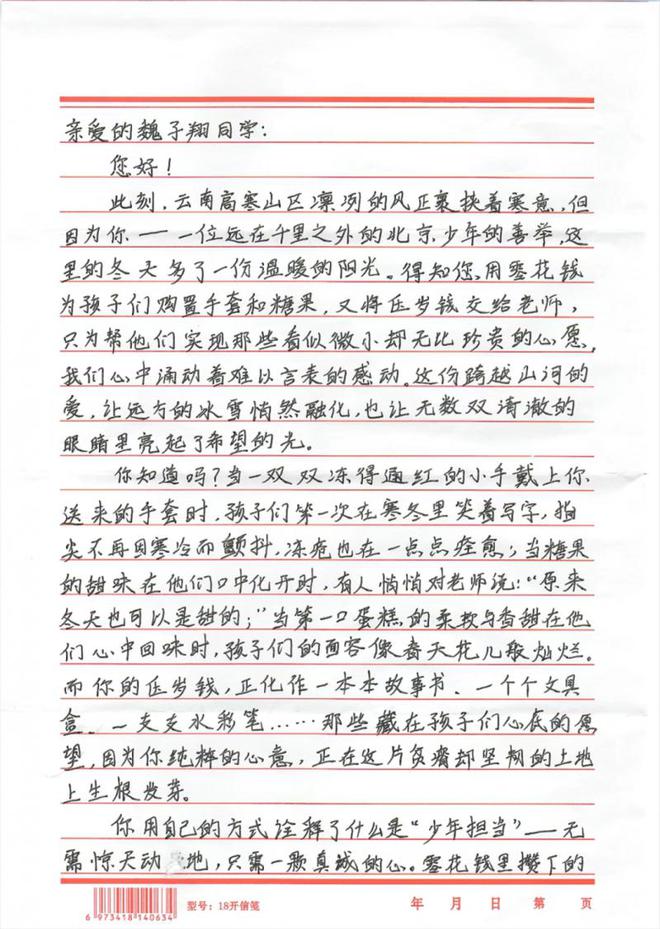 亲爱的魏子翔同学：
您好！
此刻，云南高寒山区凛冽的风正裹挟着寒意，但
因为你——一位远在千里之外的北京少年的善举，这
里的冬天多了一份温暖的阳光。得知您用零花钱
为孩子们购置手套和糖果，又将压岁钱交给老师，
只为帮他们实现那些看似微小却无比珍贵的心愿，
我们心中涌动着难以言表的感动。这份跨越山河的
爱，让远方的冰雪悄然融化，也让无数双清澈的
眼睛里亮起了希望的光。
你知道吗？当一双双冻得通红的小手戴上你
送来的手套时，孩子们第一次在寒冬里笑着写字，指
尖不再因寒冷而颤抖，冻疮也在一点点痊愈；当糖果
的甜味在他们口中化开时，有人悄悄对老师说：“原来
冬天也可以是甜的；”当第一口蛋糕的柔软与香甜在他
们心中回味时，孩子们的面容像春天花儿般灿烂。
而你的压岁钱，正化作一本本故事书、一个个文具
盒、一支支水彩笔……那些藏在孩子们心底的愿
望，因为你纯粹的心意，正在这片贫瘠却坚韧的土地
上生根发芽。
你用自己的方式诠释了什么是“少年担当”——无
需惊天动地，只需一颗真诚的心。零花钱里攒下的
6 973418 140634
型号：18开信笺
年 月 日 第 页